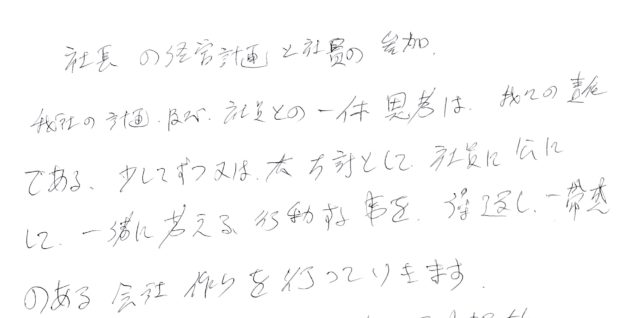 社長 の経営計画と社員の参加.
我社の計画.及び.社員との一体思考は.我々の責任
である、少しずつ又は.大方針として.社員に公に
して.一緒に考える.行動する事を.し.一帯感
のある会社作りを行っていきます.